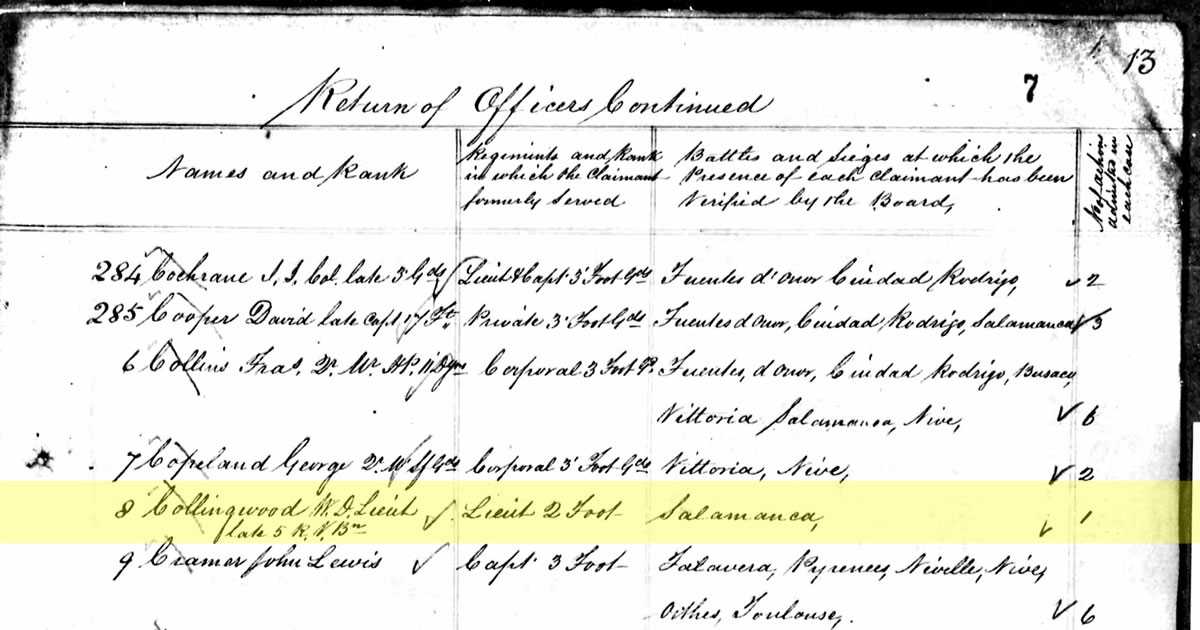 13
7
Return of Officers Continued
Names and Rank
Regiments and Rank in which the Claimant formerly Served
Battles and Sieges at which the Presence of each Claimant has been Verified by the Board,
No of actions admitted in each case
284 Cochrane J. J. Col. late 3 Gds Lieut & Capt 3 Foot Gds Fuentes d'onor Ciudad Rodrigo, 2
285 Cooper David late Capt 17 Ft Private 3 Foot Gds Fuentes d onor, Ciudad Rodrigo, Salamanca 3
6 Collins Fras. Qr. Mr. HP. 11 Dgns Corporal 3 Foot Gds Fuentes, d onor, Ciudad Rodrigo, Busaco,
Vittoria Salamanca, Nive, 6
7 Copeland George Qr. Mr Gds Corporal 3 Foot Gds Vittoria, Nive, 2
8 Collingwood W. D. Lieut Lieut 2 Foot Salamanca, 1
late 5 R. V. Bn
9 Cramer John Lewis Capt 3 Foot Talavera, Pyrenees, Nivelle, Nive,
Orthes, Toulouse, 6